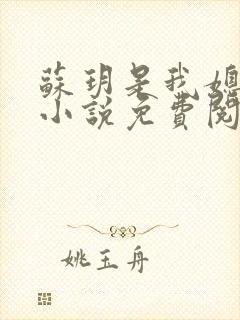 蘇玥是我媳
小說免費閱
姚玉舟